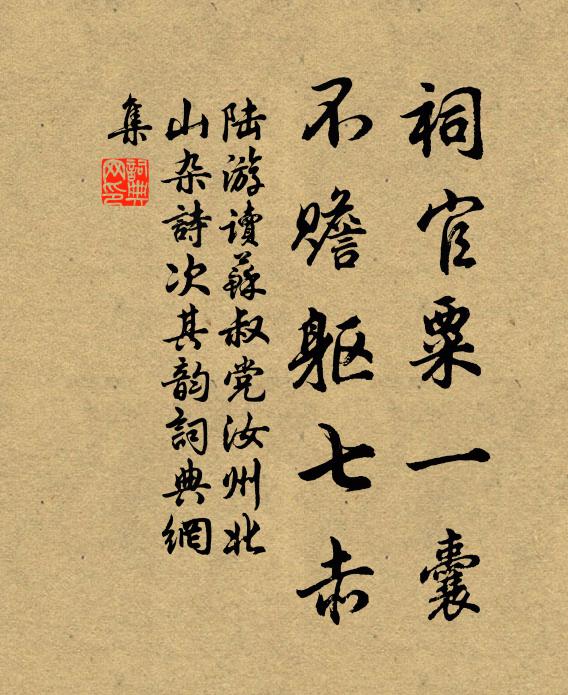 祠官粟一囊
不赡躯七赤
陆游读蘇叔党汝州北
山杂詩次其韵詞典網
集
詞典网印